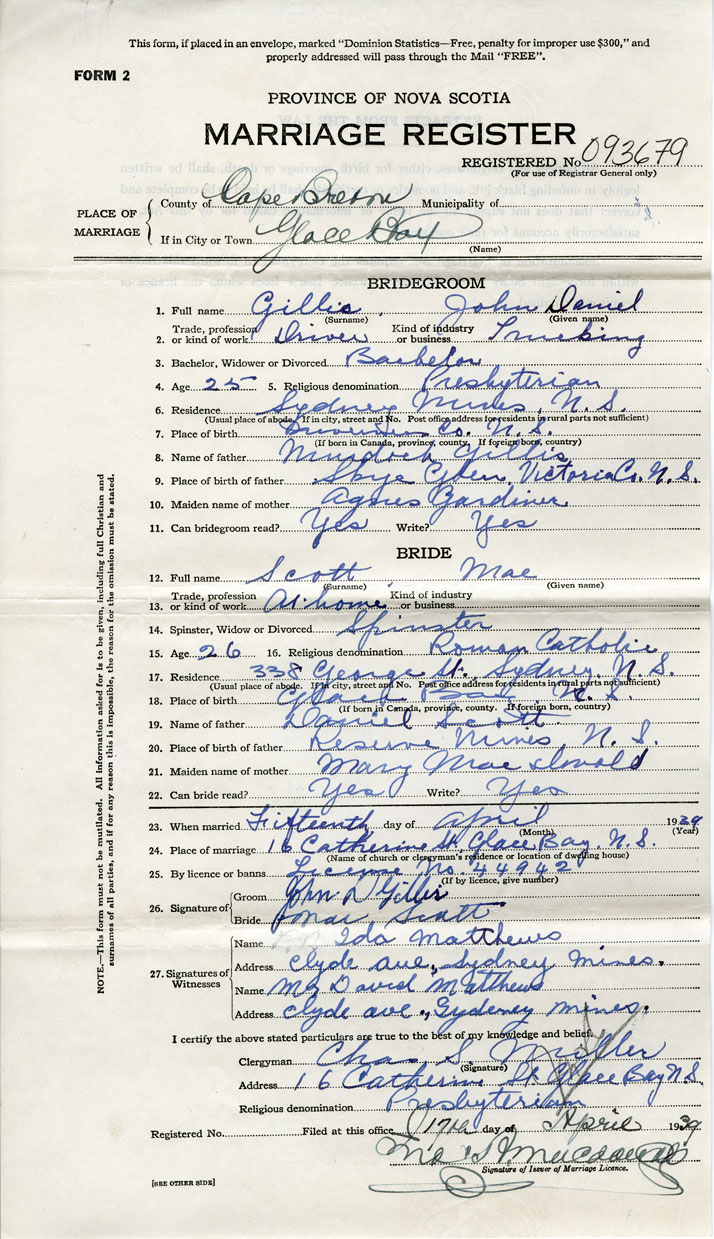 This form, if placed in an envelope, marked "Dominion Statistics—Free, penalty for improper use $300," and
properly addressed will pass through the Mail "FREE".
FORM 2
PROVINCE OF NOVA SCOTIA
MARRIAGE REGISTER
REGISTERED No 093679
(For use of Registrar General only)
PLACE OF MARRIAGE
County of Cape Breton Municipality of
If in City or Town Glace Bay
(Name)
BRIDEGROOM
1. Full name Gillis, John Daniel
(Surname) (Given name)
2. Trade, profession or kind of work Driver Kind of industry or business Trucking
3. Bachelor, Widower or Divorced Bachelor
4. Age 25 5. Religious denomination Presbyterian
6. Residence Sydney Mines, N.S.
(Usual place of abode. If in city, street and No. Post office address for residents in rural parts not sufficient)
7. Place of birth Co. N.S.
(If born in Canada, province, county. If foreign born, country)
8. Name of father Murdoch Gillis
9. Place of birth of father Skye Glen, Victoria Co. N.S.
10. Maiden name of mother Agnes Gardiner
11. Can bridegroom read? Yes Write? Yes
BRIDE
12. Full name Scott Mae
(Surname) (Given name)
13. Trade, profession or kind of work At home Kind of industry or business
14. Spinster, Widow or Divorced Spinster
15. Age 26 16. Religious denomination Roman Catholic
17. Residence 338 George St, Sydney, N.S.
(Usual place of abode. If in city, street and No. Post office address for residents in rural parts not sufficient)
18. Place of birth Glace Bay, N.S
(If born in Canada, province, county. If foreign born, country)
19. Name of father Daniel Scott
20. Place of birth of father Reserve Mines N.S.
21. Maiden name of mother Mary MacDonald
22. Can bride read? Yes Write? Yes
23. When married Fifteenth day of April 1939
(Month) (Year)
24. Place of marriage 16 Catherine St, Glace Bay, N.S.
(Name of church or clergyman's residence or location of dwelling house)
25. By licence or banns License No. 44942
(If by licence, give number)
26. Signature of
Groom John D Gillis
Bride Mae Scott
27. Signatures of Witnesses
Name Ida Matthews
Address Clyde ave., Sydney Mines.
Name David Matthews
Address Clyde ave., Sydeney Mines.
I certify the above stated particulars are true to the best of my knowledge and belief.
Clergyman Chas S.
(Signature)
Address 16 Catherine St. Glace Bay N.S.
Religious denomination Presbyterian
Registered No. Filed at this office 17th day of April 1939
Signature of Issuer of Marriage Licence.
[SEE OTHER SIDE]
NOTE.—This form must not be mutilated. All information asked for is to be given, including full Christian and
surnames of all parties, and if for any reason this is impossible, the reason for the omission must be stated.